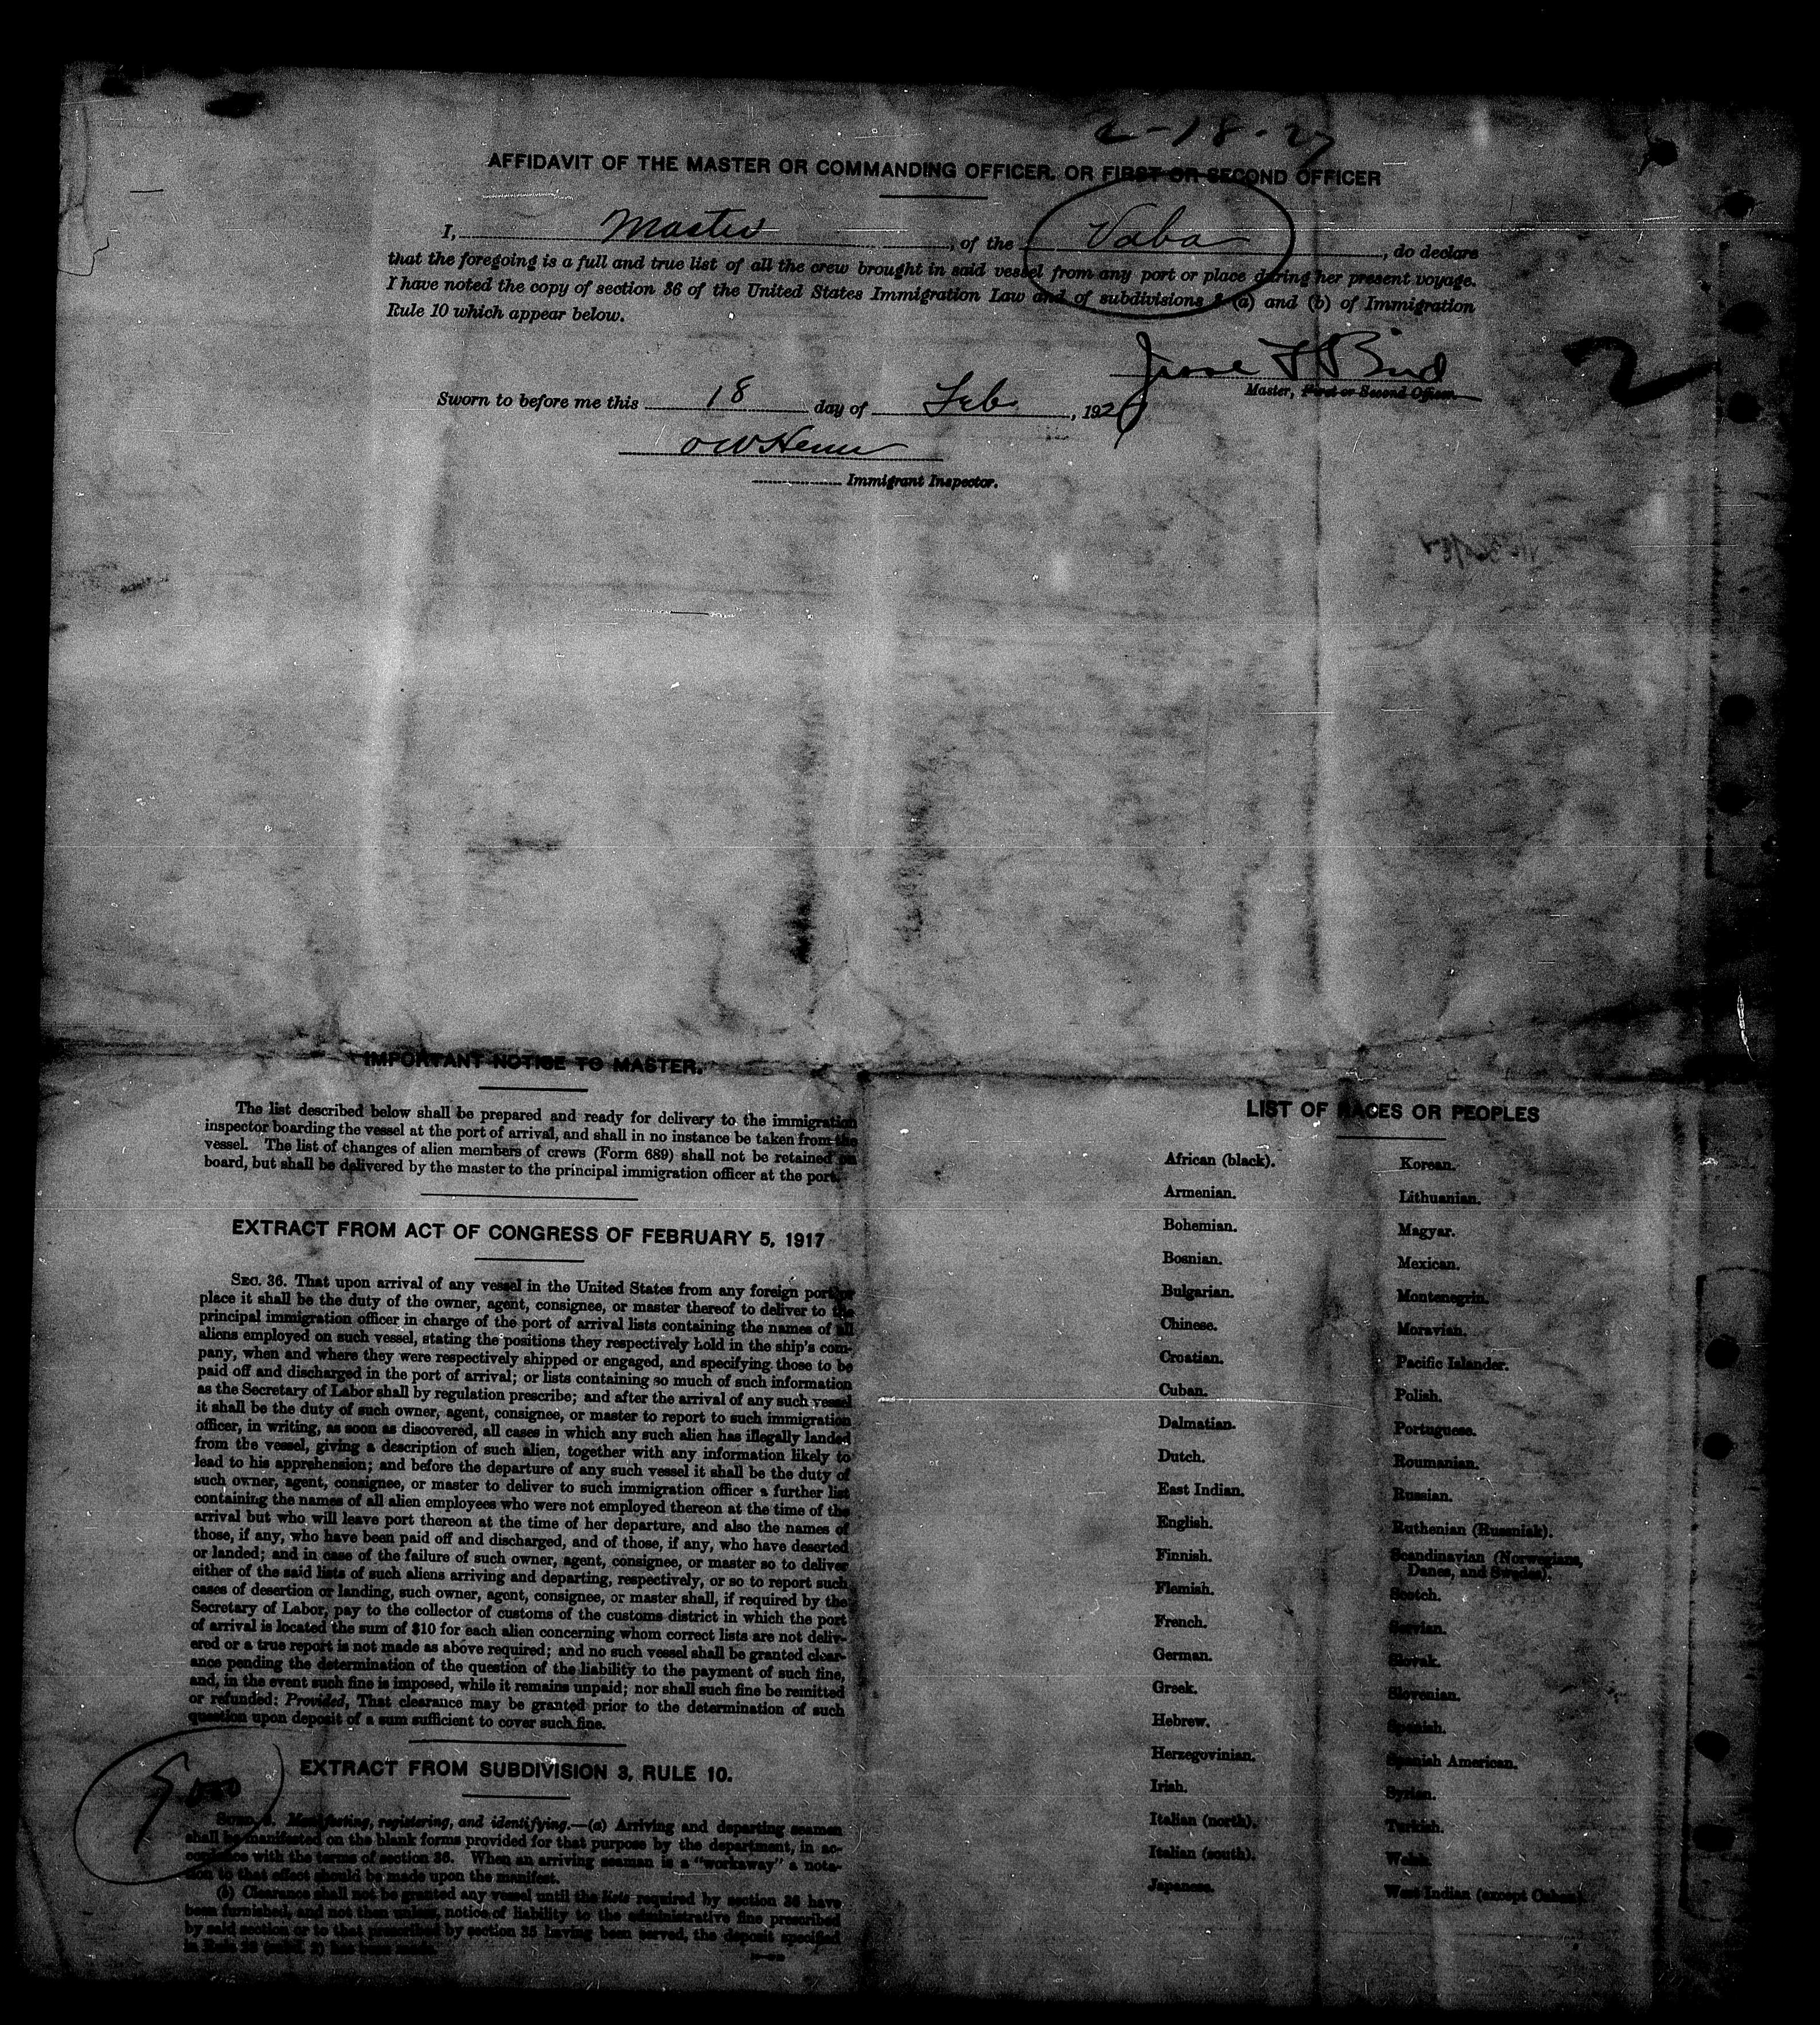 2-18-27
AFFIDAVIT OF THE MASTER OR COMMANDING OFFICER, OR FIRST OR SECOND OFFICER
I, Master, of the Vaba, do declare
that the foregoing is a full and true list of all the crew brought in said vessel from any port or place during her present voyage.
I have noted the copy of section 36 of the United States Immigration Law and of subdivisions 3 (a) and (b) of Immigration
Rule 10 which appear below.
Jesse F Bird
2
Master, First or Second Officer.
Sworn to before me this 18 day of Feb, 192
Immigrant Inspector.
IMPORTANT NOTICE TO MASTER.
The list described below shall be prepared and ready for delivery to the immigration
inspector boarding the vessel at the port of arrival, and shall in no instance be taken from the
vessel. The list of changes of alien members of crews (Form 689) shall not be retained on
board, but shall be delivered by the master to the principal immigration officer at the port.
EXTRACT FROM ACT OF CONGRESS OF FEBRUARY 5, 1917
SEC. 36. That upon arrival of any vessel in the United States from any foreign port or
place it shall be the duty of the owner, agent, consignee, or master thereof to deliver to the
principal immigration officer in charge of the port of arrival lists containing the names of all
aliens employed on such vessel, stating the positions they respectively hold in the ship's com-
pany, when and where they were respectively shipped or engaged, and specifying those to be
paid off and discharged in the port of arrival; or lists containing so much of such information
as the Secretary of Labor shall by regulation prescribe; and after the arrival of any such vessel
it shall be the duty of such owner, agent, consignee, or master to report to such immigration
officer, in writing, as soon as discovered, all cases in which any such alien has illegally landed
from the vessel, giving a description of such alien, together with any information likely to
lead to his apprehension; and before the departure of any such vessel it shall be the duty of
such owner, agent, consignee, or master to deliver to such immigration officer a further list
containing the names of all alien employees who were not employed thereon at the time of the
arrival but who will leave port thereon at the time of her departure, and also the names of
those, if any, who have been paid off and discharged, and of those, if any, who have deserted
or landed; and in case of the failure of such owner, agent, consignee, or master so to deliver
either of the said lists of such aliens arriving and departing, respectively, or so to report such
cases of desertion or landing, such owner, agent, consignee, or master shall, if required by the
Secretary of Labor, pay to the collector of customs of the customs district in which the port
of arrival is located the sum of $10 for each alien concerning whom correct lists are not deliv-
ered or a true report is not made as above required; and no such vessel shall be granted clear-
ance pending the determination of the question of the liability to the payment of such fine,
and, in the event such fine is imposed, while it remains unpaid; nor shall such fine be remitted
or refunded: Provided, That clearance may be granted prior to the determination of such
question upon deposit of a sum sufficient to cover such fine.
EXTRACT FROM SUBDIVISION 3, RULE 10.
SUBD. 3. Manifesting, registering, and identifying.—(a) Arriving and departing seamen
shall be manifested on the blank forms provided for that purpose by the department, in ac-
cordance with the terms of section 36. When an arriving seaman is a "workaway" a nota-
tion to that effect should be made upon the manifest.
(b) Clearance shall not be granted any vessel until the lists required by section 36 have
been furnished, and not then unless, notice of liability to the administrative fine prescribed
by said section or to that prescribed by section 35 having been served, the deposit specified
in Rule
LIST OF RACES OR PEOPLES
African (black).
Armenian.
Bohemian.
Bosnian.
Bulgarian.
Chinese.
Croatian.
Cuban.
Dalmatian.
Dutch.
East Indian.
English.
Finnish.
Flemish.
French.
German.
Greek.
Hebrew.
Herzegovinian.
Irish.
Italian (north).
Italian (south).
Japanese.
Korean.
Lithuanian.
Magyar.
Mexican.
Montenegrin.
Moravian.
Pacific Islander.
Polish.
Portuguese.
Roumanian.
Russian.
Ruthenian (Russniak).
Scandinavian (Norwegians,
Danes, and Swedes).
Scotch.
Servian.
Slovak.
Slovenian.
Spanish.
Spanish American.
Syrian.
Turkish.
Welsh.
West Indian (except Cuban).